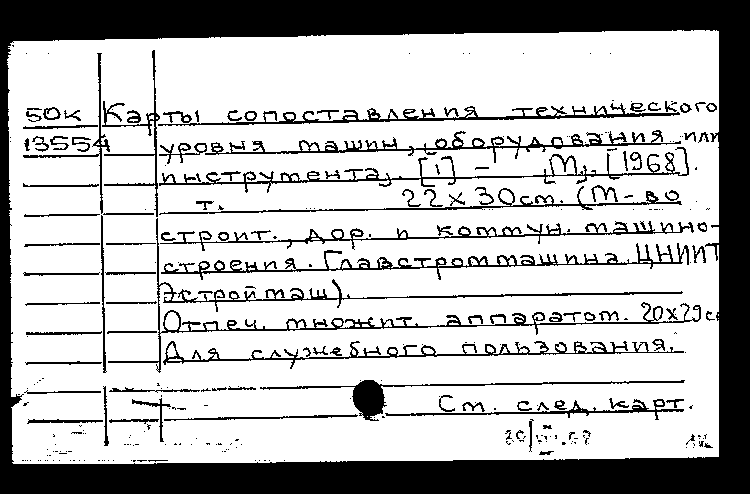 50к Карты сопоставления технического
13554 уровня машин, оборудования или
инструмента. [1] - , М., [1968].
т. 22х30см. (М-во
строит., дор. и коммун. машино-
строения. Главстроммашина. ЦНИИТ
Эстроймаш).
Отпеч. множит. аппаратом. 20х29см
Для служебного пользования.
См. след. карт.